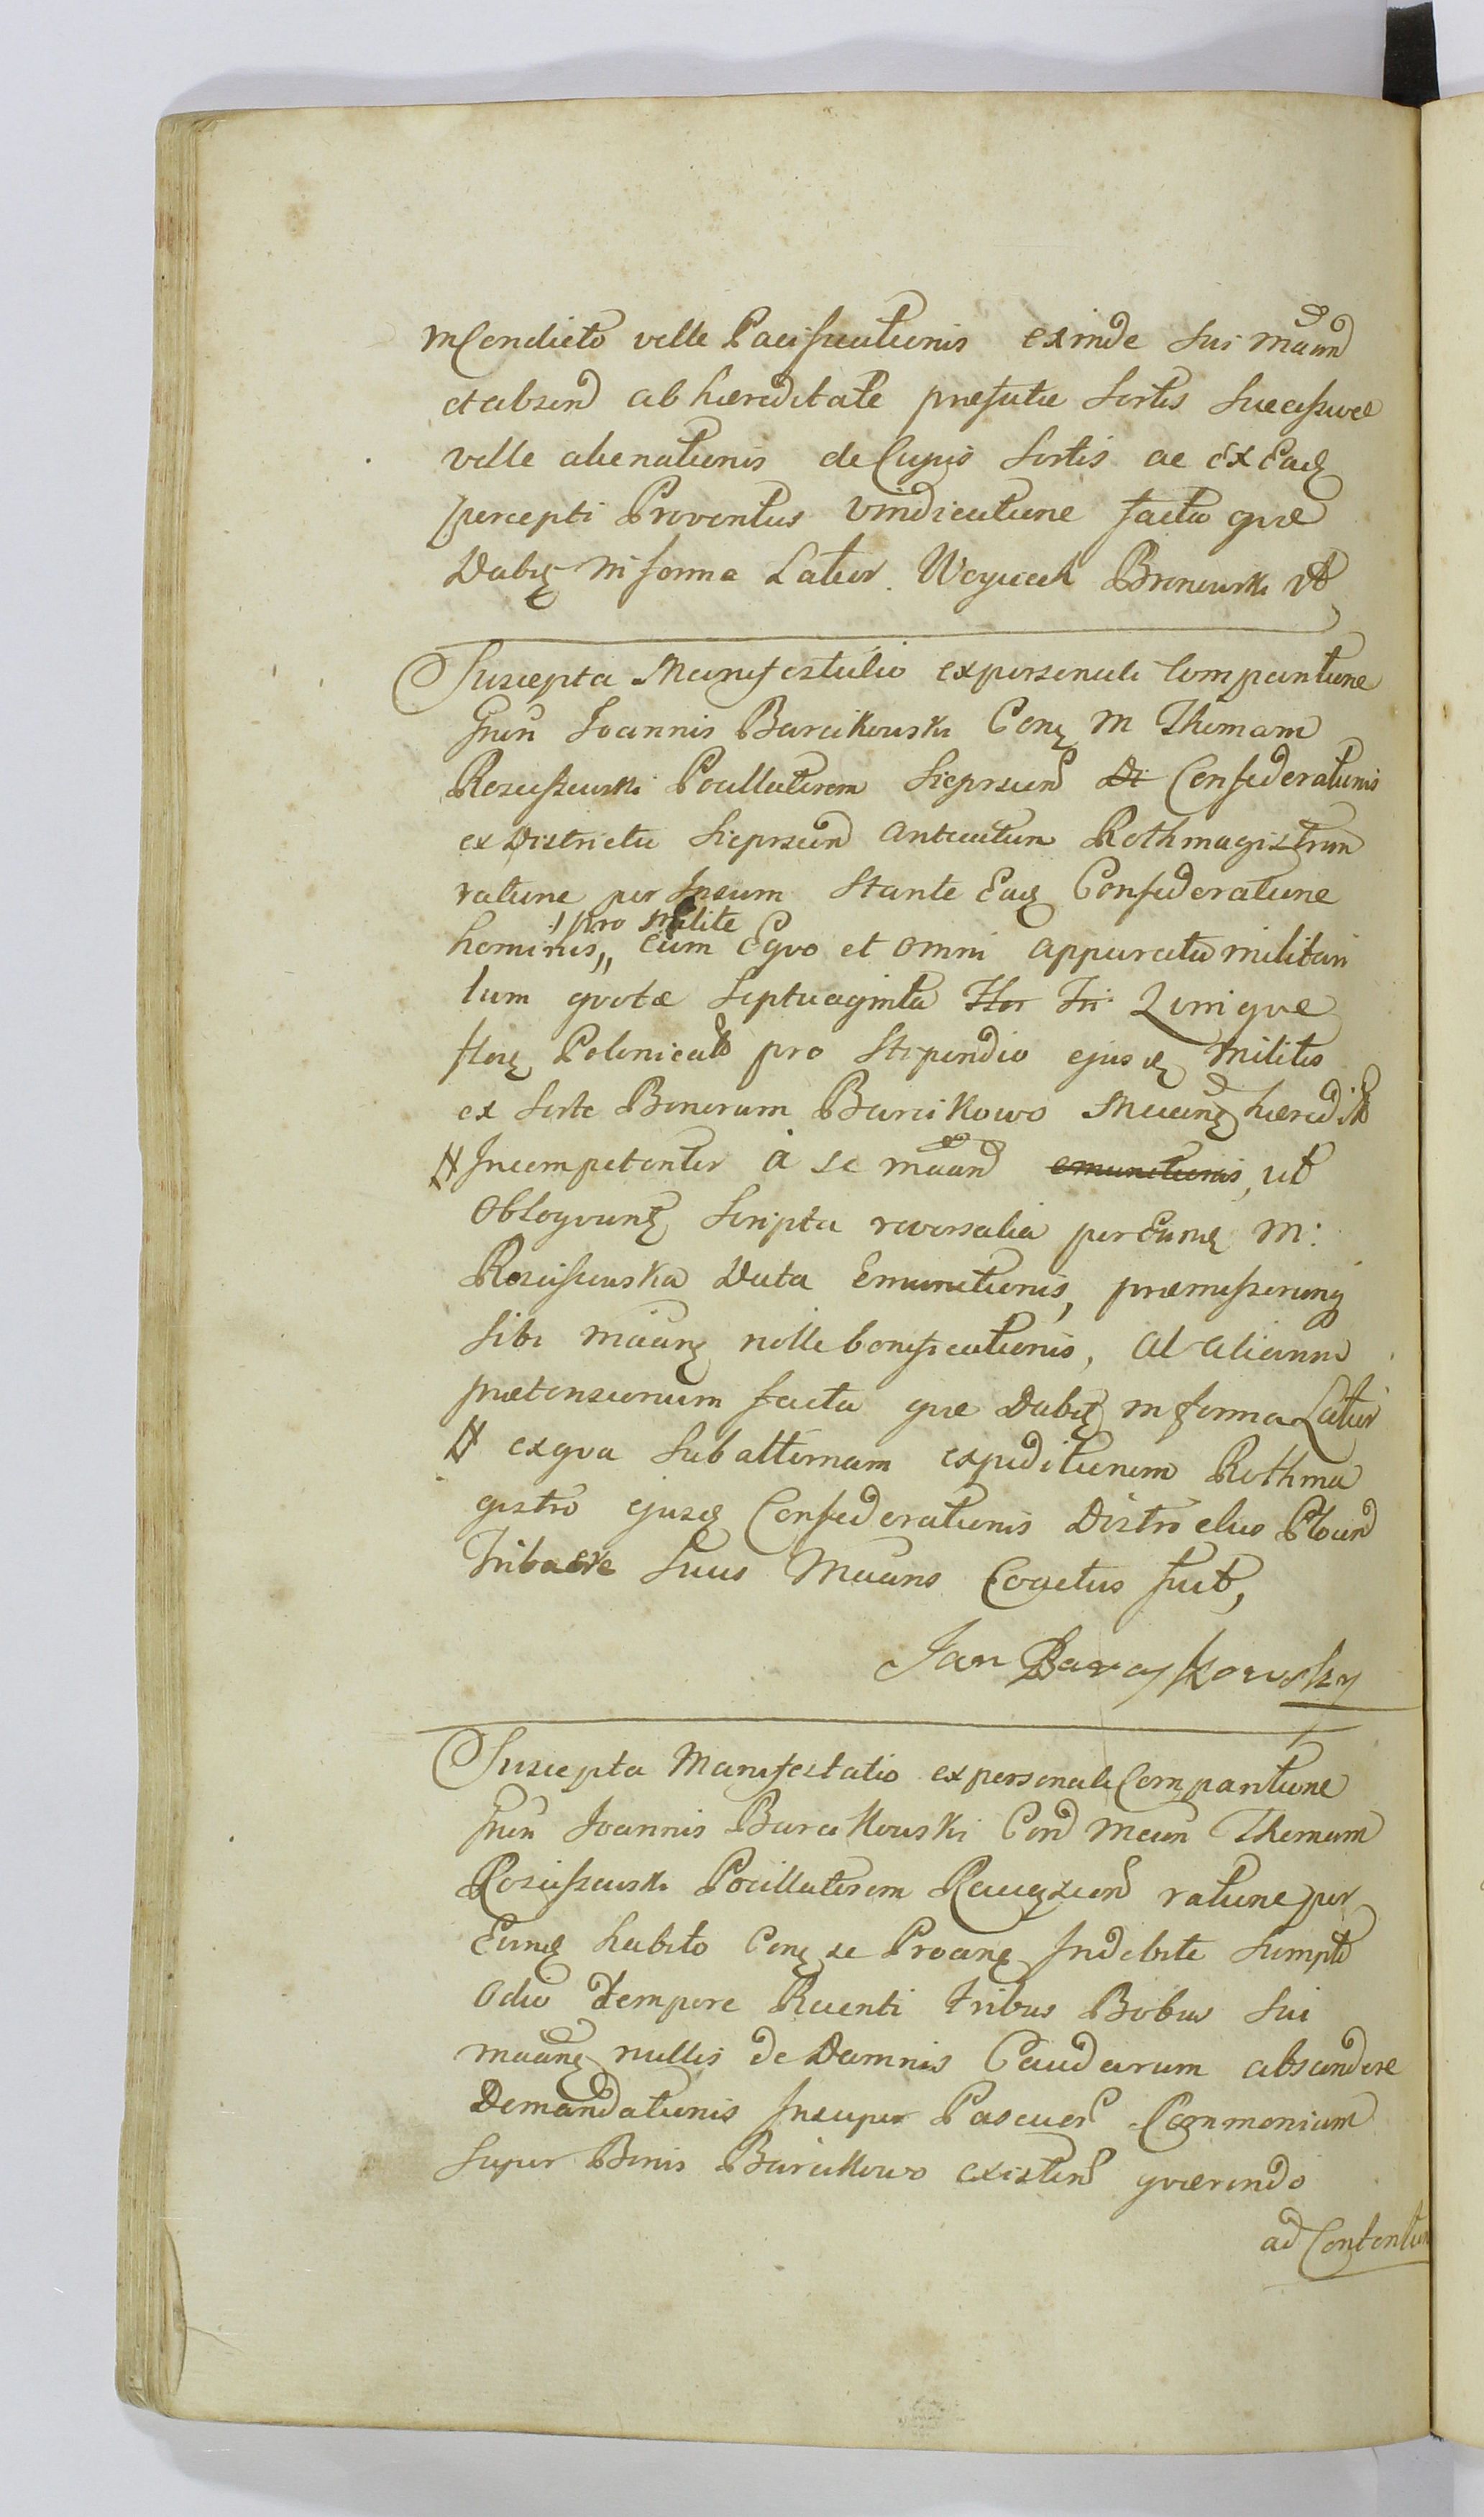 in Condicto velle Pacificationis exinde sui maand
et absend ab hæreditate præfatæ sortis successivæ
velle alienationis de Cujus sortis ac ex Eadq
percepti Proventus vindicatione facta quæ
Dabiq in forma Latior. Woyciech Bronowski
Suscepta Manifestatio ex personali Comparitione
Gnsi Joannis Barcikowski Conq M Thomam
Rosciszewski Pocillatorem Sieprscen Di Confederationis
ex Districtu Sieprscen Rothmagistrum
ratione per Ipsum Stante Eadq Confederatione
! pro Milite
hominis,, cum Eqvo et omni apparatu militari
tum qvotæ Septuaginta Flor Tri Qvinqve
florq Polonical pro Stipendio ejusdq Militis
ex sorte Bonorum Barcikowo hæredit
# Incompetenter à se maand emunctionis, ut
Obloqvunq Scripta reversalia per Eumq M:
Rosciszewska Data Emunctionis, præmissorumq
sibi maanq nolle bonificationis, al aliarum
prætensionum facta quæ Dabitq in forma Latior
# ex qva Subalternam expeditionem Rothma
gistro ejusdq Confederationis Districtus Plocend
Tribuere Suus Maans Coactus fuit,
Jan Barcykowsky
Suscepta Manifestatio ex personali Comparitione
Gnsi Joannis Barcikowski Cond Maan Thomam
Rosciszewski Pocillatorem Raciązcend ratione per
Eumq habito Conq se Proanq Indebite Sumpto
Odio Tempore Recenti tribus Bobus Sui
maanq nullis de Damnis Caudarum abscindere
Demandationis Insuper Pascuor Commonium
super Bonis Barcikowo existend qværendo
ad Contentum